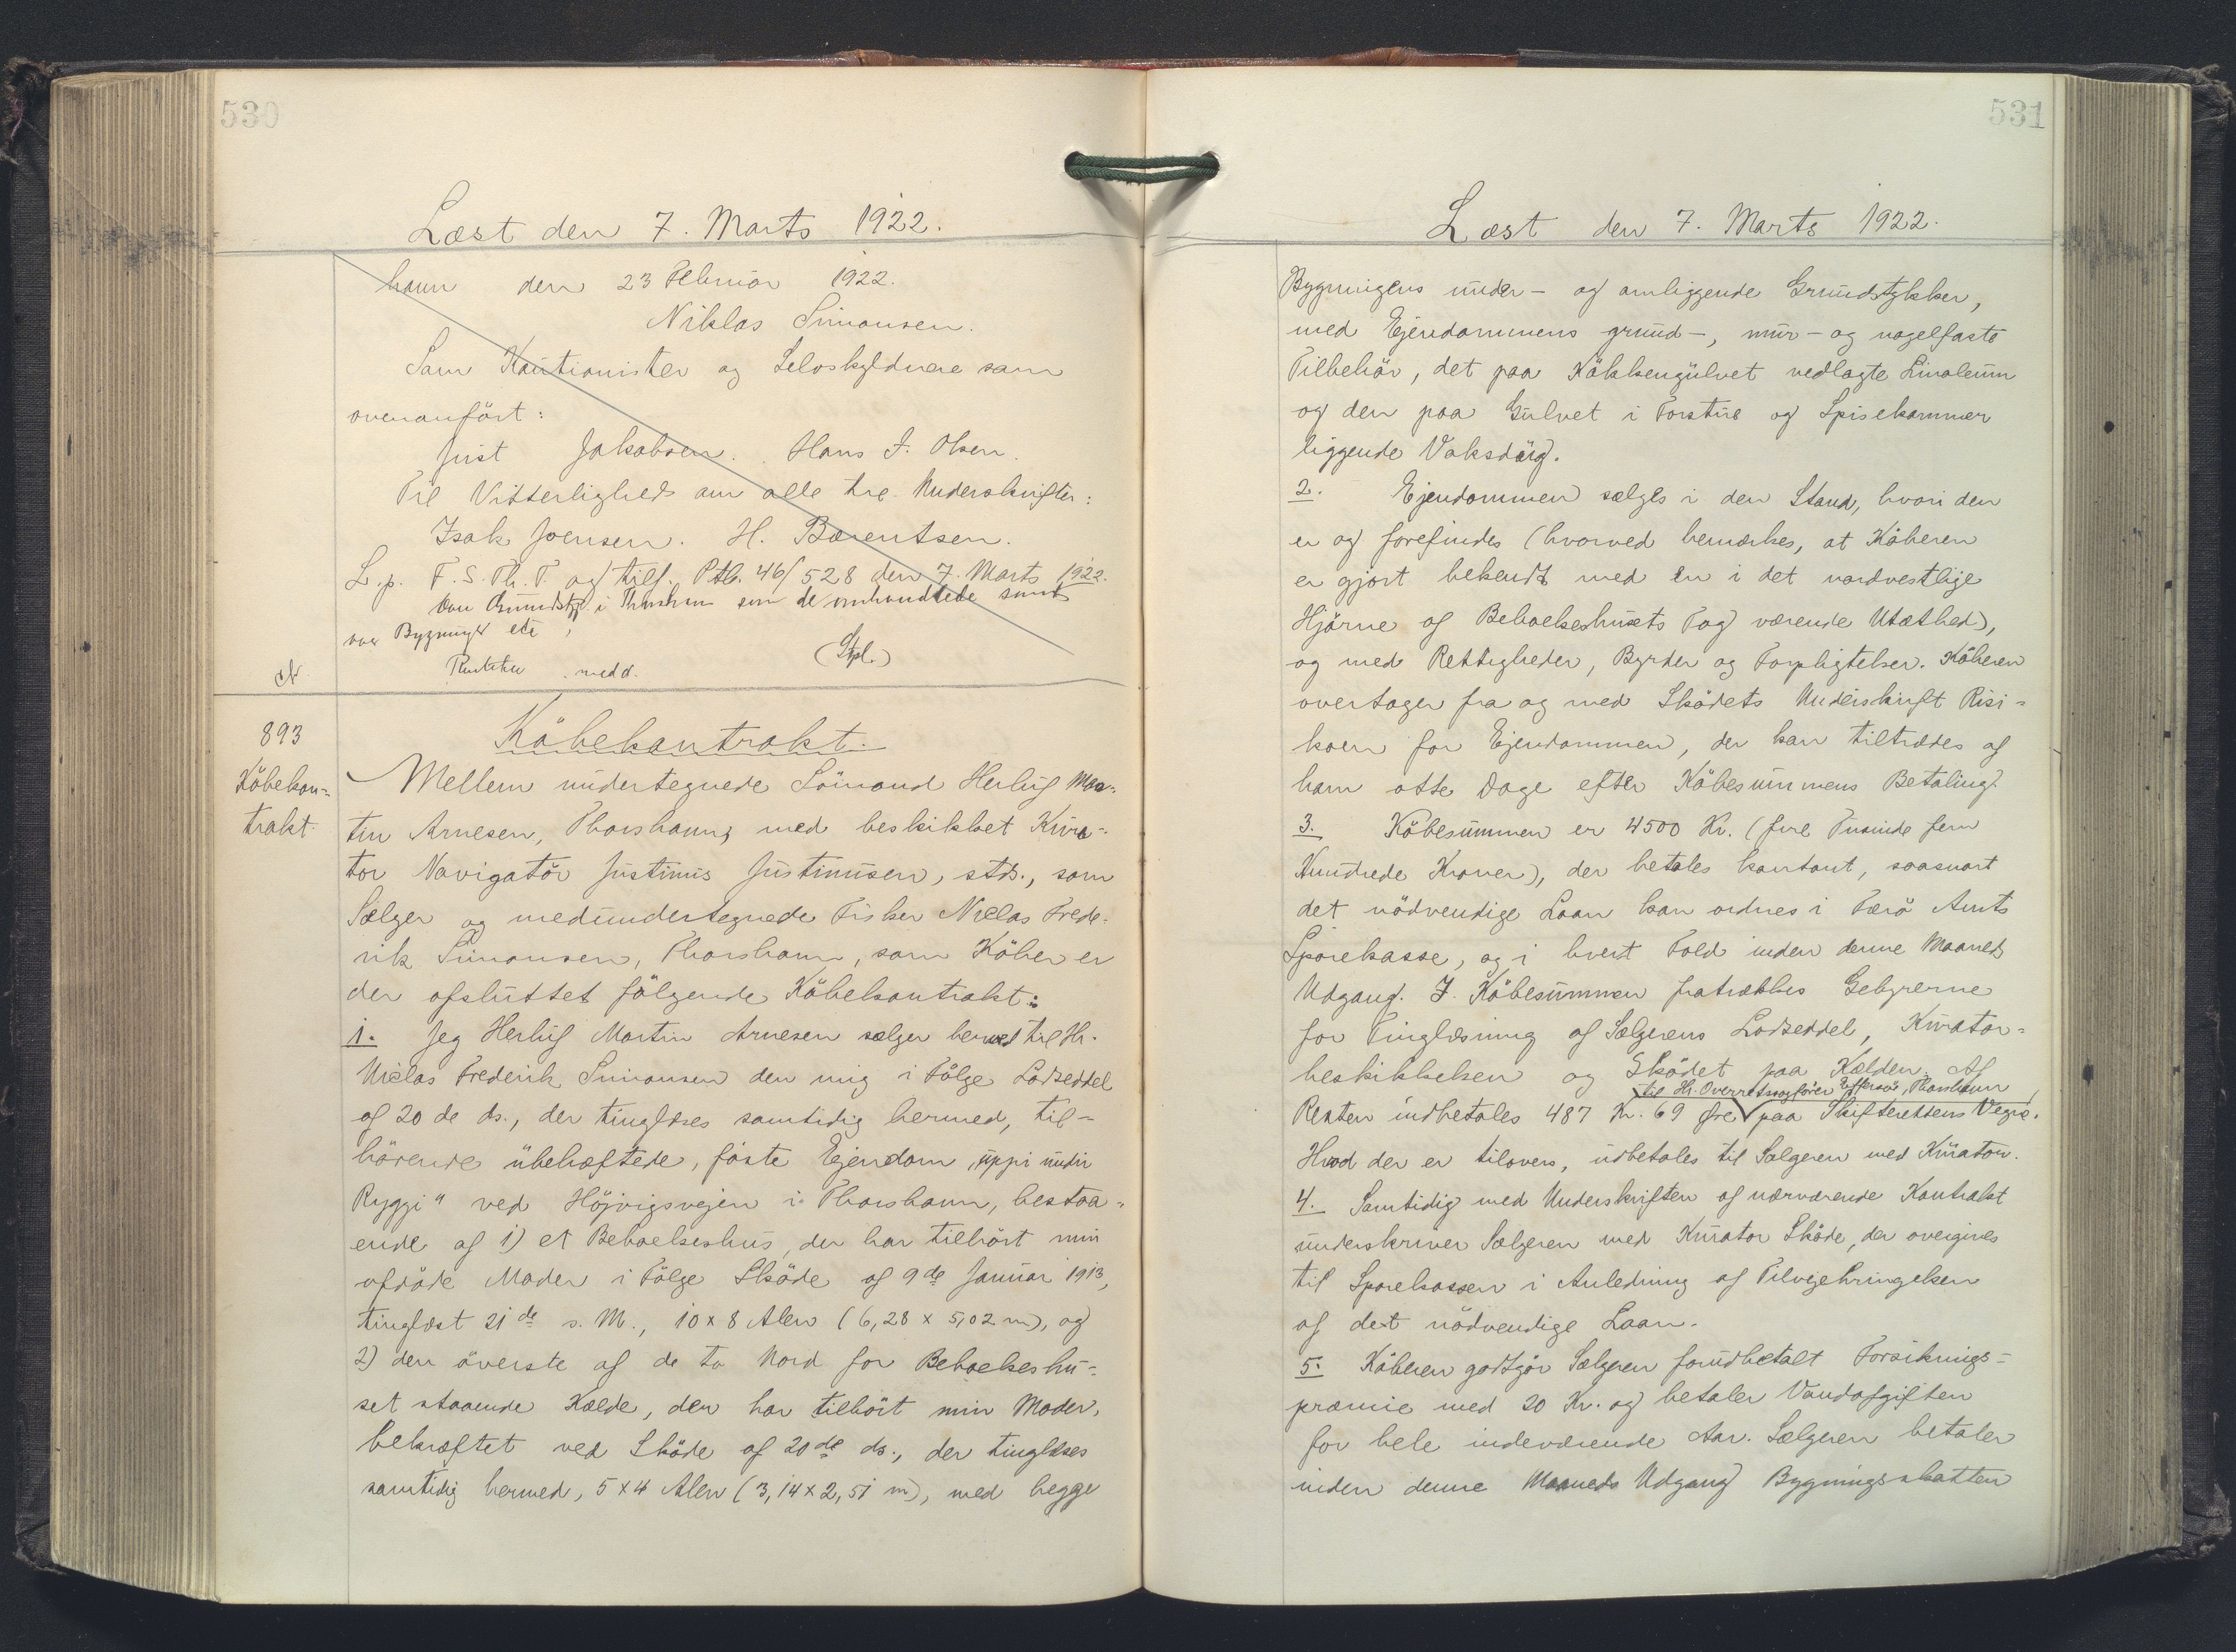 530
Læst den 7. Marts 1922.
havn den 23 Februar 1922.
Niklas Simonsen.
Som Kautionister og Selvskyldnere som
ovenanført:
Just Jakobsen. Hans J. Olsen.
Til Vitterlighed om alle tre Underskrifter:
Isak Joensen. H. Barentsen.
L. p. F. S. Th. T. og tilf. Ptb. 46/528 den 7. Marts 1922.
i Thorshavn som de omhandlede
Bygninger etc,
medd. (Stpl.)
893
Köbekon=
trakt.
Köbekontrakt.
Mellem undertegnede Sömand Herluf Mar=
tin Arnesen, Thorshavn, med beskikket Kura=
tor Navigatör Justinus Justinusen, stds., som
Sælger og medundertegnede Fisker Niclas Frede=
rik Simonsen, Thorshavn, som Köber er
der afsluttet fölgende Köbekontrakt:
1. Jeg Herluf Martin Arnesen sælger herved til Hr.
Niclas Frederik Simonsen den mig i Fölge Lodseddel
af 20 de ds., der tinglæses samtidig hermed, til=
hörende übehæftede, faste Ejendom „uppi undir
Ryggi" ved Höjvigsvejen i Thorshavn, bestaa=
ende af 1) et Beboelseshus, der har tilhört min
afdöde Moder i Fölge Sköde af 9de Januar 1913,
tinglæst 21de s. M., 10 x 8 Alen (6,28 x 5,02 m), og
2) den överste af de to Nord for Beboelseshu=
set staaende Kælde, der har tilhört min Moder,
bekræftet ved Sköde af 20de ds., der tinglæses
samtidig hermed, 5 x 4 Alen (3,14 x 2,51 m), med begge
531
Læst den 7. Marts 1922.
Bygningens under- og omliggende Grundstykker,
med Ejendommens grund-, mur- og nagelfaste
Tilbehör, det paa Kökkengulvet vedlagte Linoleum
og den paa Gulvet i Forstue og Spisekammer
liggende Voksdug.
2. Ejendommen sælges i den Stand, hvori den
er og forefindes (hvorved bemærkes, at Köberen
er gjort bekendt med en i det nordvestlige
Hjörne af Beboelseshusets Tag værende Utæthed),
og med Rettigheder, Byrder og Forpligtelser. Köberen
overtager fra og med Sködets Underskrift Risi=
koen for Ejendommen, der kan tiltrædes af
ham otte Dage efter Köbesummens Betaling.
3. Köbesummen er 4500 Kr. (fire Tusinde fem
Hundrede Kroner), der betales kontant, saasnart
det nödvendige Laan kan ordnes i Færö Amts
Sparekasse, og i hvert Fald inden denne Maaneds
Udgang. I Köbesummen fratrækkes Gebyrerne
for Tinglæsning af Sælgerens Lodseddel, Kurator=
beskikkelsen og Sködet paa Kælden. Af
til Hr. Overretssagförer Effersöe, Thorshavn
Resten indbetales 487 Kr. 69 Øre paa Skifterettens Vegne.
Hvad der er tilovers, udbetales til Sælgeren med Kurator.
4. Samtidig med Underskriften af nærværende Kontrakt
underskriver Sælgeren med Kurator Sköde, der overgives
til Sparekassen i Anledning af Tilvejebringelsen
af det nödvendige Laan.
5. Köberen godtgör Sælgeren forudbetalt Forsikrings=
præmie med 20 Kr. og betaler Vandafgiften
for hele indeværende Aar. Sælgeren betaler
inden denne Maaneds Udgang Bygningsskatten